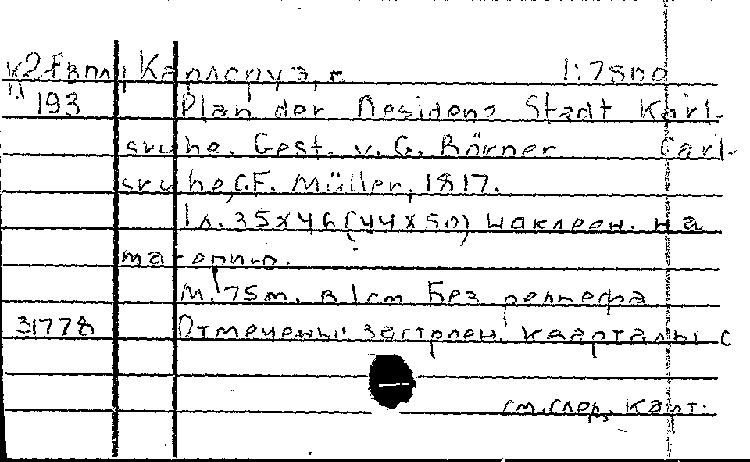 К2 Евпл, Карлсруэ, г. 1:7500
IX 193 Plan der Residenz Stadt Karl-
sruhe. Gest. v. G. Börner Carl-
sruhe, C.F. Müller, 1817.
1 л. 35x46 (44x50) наклеен. на
материю.
М. 75m. в 1cm Без рельефа
31778 Отмечены: застроен. кварталы с
см. след. карт.